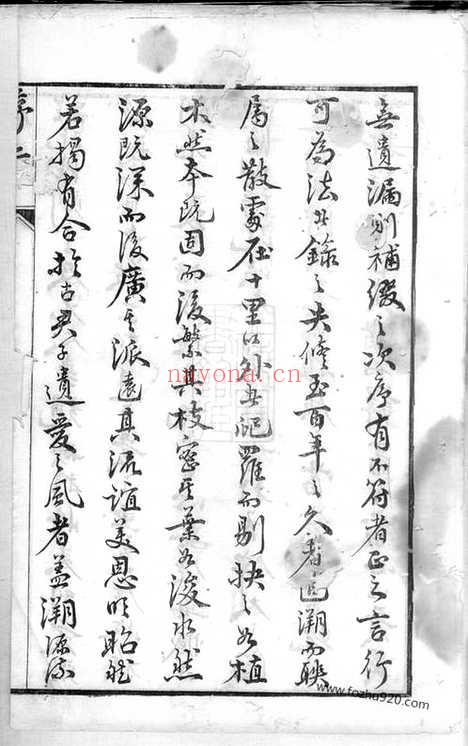 無遺漏則補綴之次序有不符者正之言行
可為法者錄之失修至百年之久者追溯而聯
屬之散處在十里以外者爬羅而剔抉之如植
木然本既固而後繁其枝密其葉如浚水然
源既深而後廣其派遠其流誼美恩明昭然
若揭有合於古君子遺愛之風者蓋溯源流
序二
nayona.cn
www.fozhu920.com